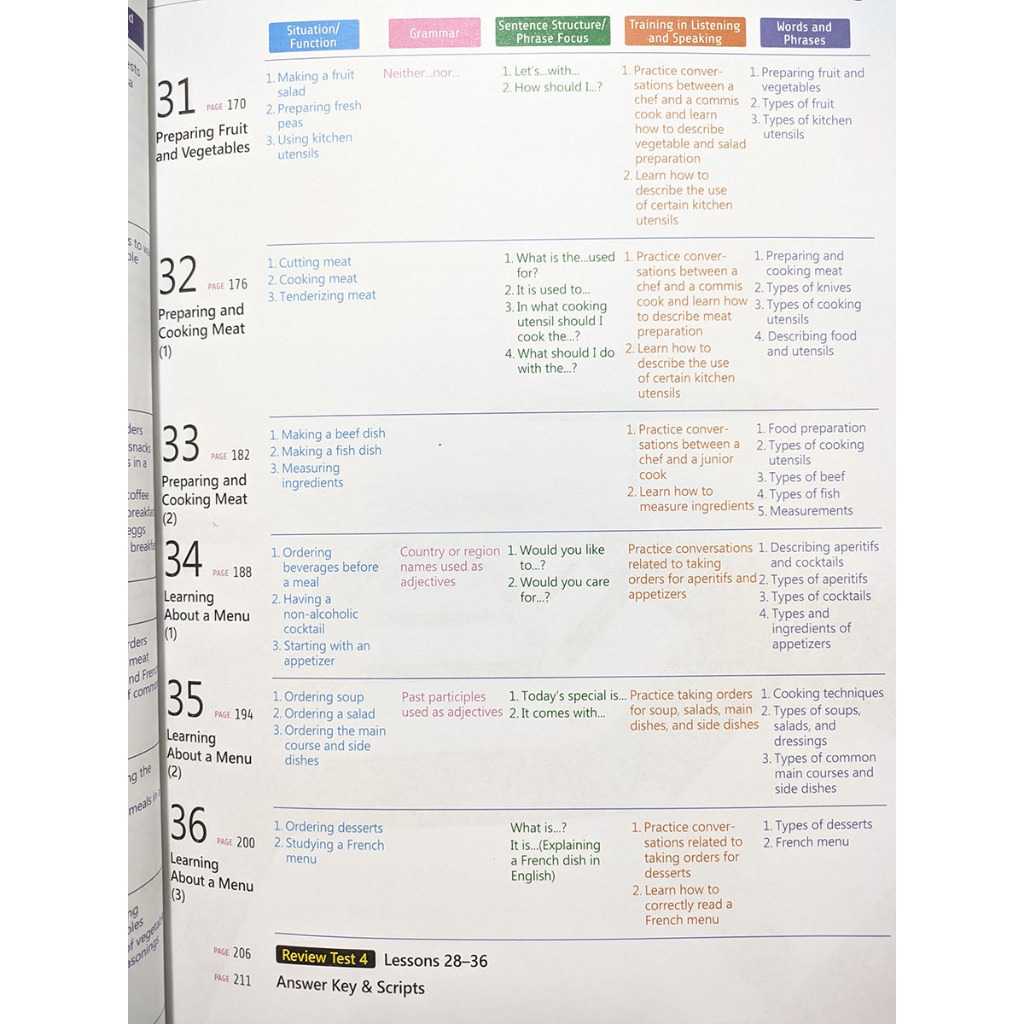 Situation/
Function
Grammar
Sentence Structure/
Phrase Focus
Training in Listening
and Speaking
Words and
Phrases
31 PAGE 170
Preparing Fruit
and Vegetables
1. Making a fruit
salad
2. Preparing fresh
peas
3. Using kitchen
utensils
Neither...nor...
1. Let's...with...
2. How should I...?
1. Practice conver-
sations between a
chef and a commis
cook and learn
how to describe
vegetable and salad
preparation
2. Learn how to
describe the use
of certain kitchen
utensils
1. Preparing fruit and
vegetables
2. Types of fruit
3. Types of kitchen
utensils
32 PAGE 176
Preparing and
Cooking Meat
(1)
1. Cutting meat
2. Cooking meat
3. Tenderizing meat
1. What is the...used
for?
2. It is used to...
3. In what cooking
utensil should I
cook the...?
4. What should I do
with the...?
1. Practice conver-
sations between a
chef and a commis
cook and learn how
to describe meat
preparation
2. Learn how to
describe the use
of certain kitchen
utensils
1. Preparing and
cooking meat
2. Types of knives
3. Types of cooking
utensils
4. Describing food
and utensils
33 PAGE 182
Preparing and
Cooking Meat
(2)
1. Making a beef dish
2. Making a fish dish
3. Measuring
ingredients
1. Practice conver-
sations between a
chef and a junior
cook
2. Learn how to
measure ingredients
1. Food preparation
2. Types of cooking
utensils
3. Types of beef
4. Types of fish
5. Measurements
34 PAGE 188
Learning
About a Menu
(1)
1. Ordering
beverages before
a meal
2. Having a
non-alcoholic
cocktail
3. Starting with an
appetizer
Country or region
names used as
adjectives
1. Would you like
to...?
2. Would you care
for...?
Practice conversations
related to taking
orders for aperitifs and
appetizers
1. Describing aperitifs
and cocktails
2. Types of aperitifs
3. Types of cocktails
4. Types and
ingredients of
appetizers
35 PAGE 194
Learning
About a Menu
(2)
1. Ordering soup
2. Ordering a salad
3. Ordering the main
course and side
dishes
Past participles
used as adjectives
1. Today's special is...
2. It comes with...
Practice taking orders
for soup, salads, main
dishes, and side dishes
1. Cooking techniques
2. Types of soups,
salads, and
dressings
3. Types of common
main courses and
side dishes
36 PAGE 200
Learning
About a Menu
(3)
1. Ordering desserts
2. Studying a French
menu
What is...?
It is...(Explaining
a French dish in
English)
1. Practice conver-
sations related to
taking orders for
desserts
2. Learn how to
correctly read a
French menu
1. Types of desserts
2. French menu
PAGE 206 Review Test 4 Lessons 28–36
PAGE 211 Answer Key & Scripts